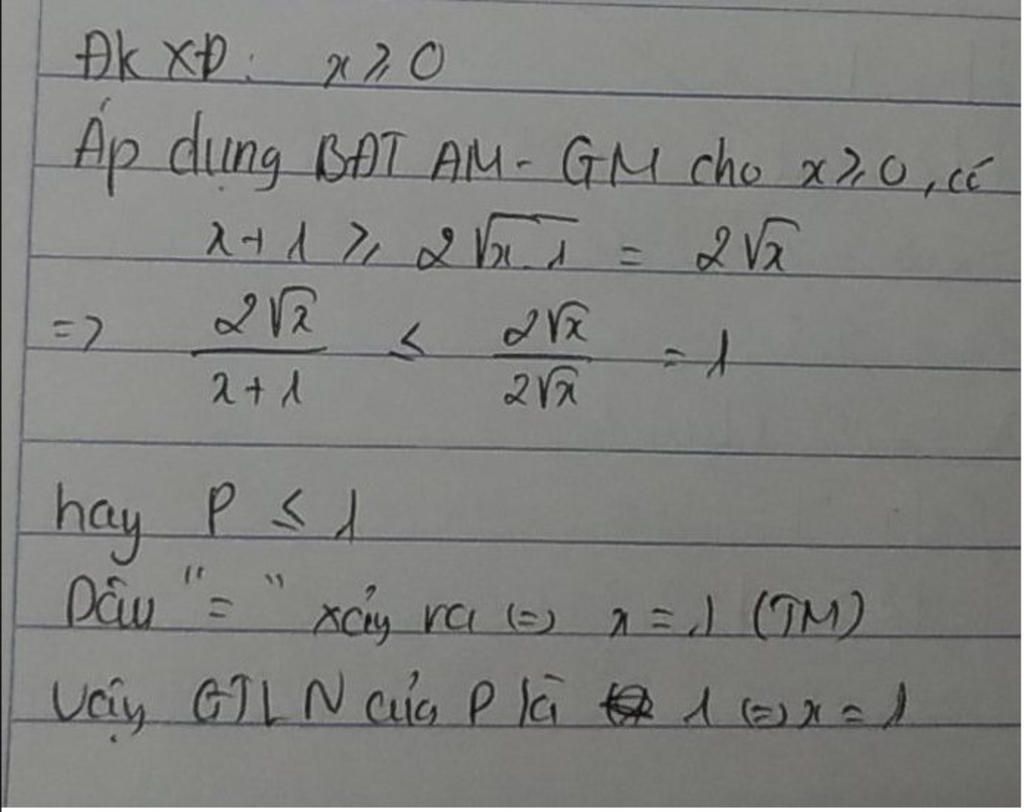 ĐK XĐ: x ≥ 0
Áp dụng BĐT AM-GM cho x ≥ 0, có
x + 1 ≥ 2√(x.1) = 2√x
=> 2√x / x + 1 ≤ 2√x / 2√x = 1
hay P ≤ 1
Dấu "=" xảy ra (=) x = 1 (TM)
Vậy GTLN của P là 1 (=) x = 1